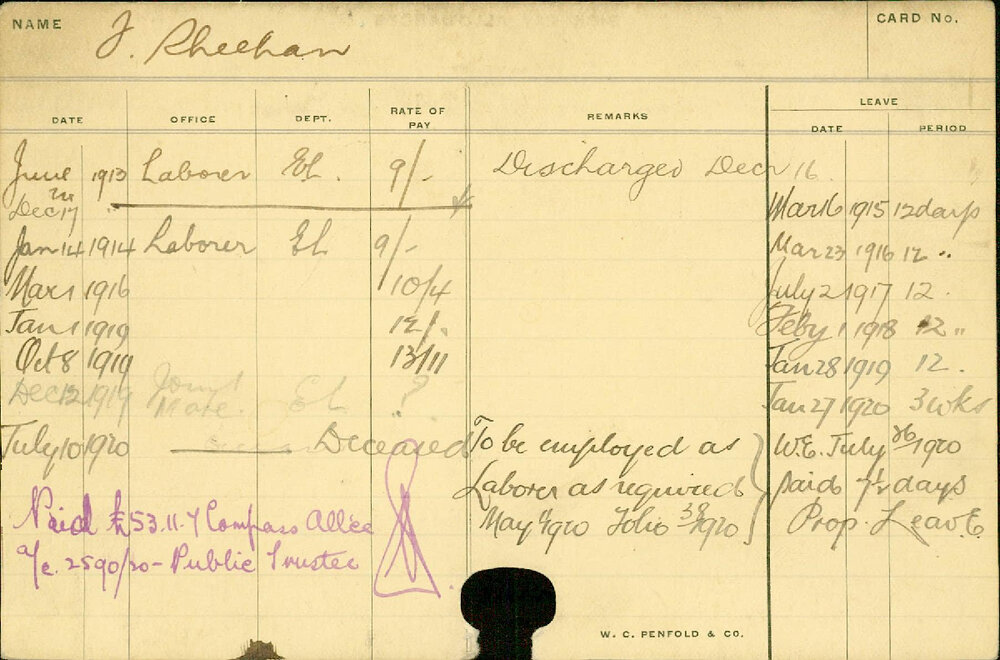 NAME J. Sheehan CARD No.
DATE OFFICE DEPT. RATE OF PAY REMARKS LEAVE
DATE PERIOD
June 1913 Laborer EL. 9/- Discharged Decr 16.
Dec 17
Mar 16 1915 12 days
Jan 14 1914 Laborer EL 9/- Mar 23 1916 12 "
Mar 1 1916 10/4 July 2 1917 12 .
Jan 1 1919 12/. Feby 1 1918 12 "
Oct 8 1919 13/11 Jan 28 1919 12 .
Dec 12 1919 Joint Mate. EL ? Jan 27 1920 3 wks
July 10 1920 Deceased To be employed as W.E. July 26/1920
Laborer as required paid 7½ days
May 4/1920 Folio 38/1920 Prop. Leave.
Paid £53.11.7 Compass Allce
a/c. 2590/20 - Public Trustee
W. C. PENFOLD & CO.